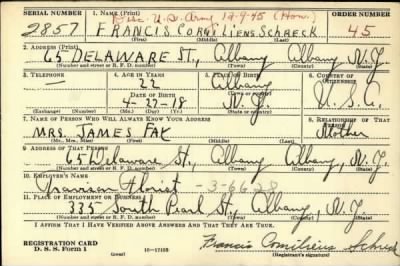 SERIAL NUMBER 1. NAME (Print) ORDER NUMBER
Disc. U.S. Army 12-9-45 (Hon.)
2857 FRANCIS Schreck 45
(First) (Middle) (Last)
2. ADDRESS (Print)
65 DELAWARE ST., Albany Albany N.Y.
(Number and street or R. F. D. number) (Town) (County) (State)
3. TELEPHONE 4. AGE IN YEARS 5. PLACE OF BIRTH 6. COUNTRY OF CITIZENSHIP
22 Albany
(Town or county)
DATE OF BIRTH
4-27-18 N.Y. U.S.A.
(Exchange) (Number) (Mo.) (Day) (Yr.) (State or country)
7. NAME OF PERSON WHO WILL ALWAYS KNOW YOUR ADDRESS 8. RELATIONSHIP OF THAT PERSON
MRS. JAMES FAK Mother
(Mr., Mrs., Miss) (First) (Middle) (Last)
9. ADDRESS OF THAT PERSON
65 Delaware St., Albany Albany, N.Y.
(Number and street or R. F. D. number) (Town) (County) (State)
10. EMPLOYER'S NAME
Florist -3-6628
11. PLACE OF EMPLOYMENT OR BUSINESS
335 South Pearl St., Albany, N.Y.
(Number and street or R. F. D. number) (Town) (County) (State)
I AFFIRM THAT I HAVE VERIFIED ABOVE ANSWERS AND THAT THEY ARE TRUE.
REGISTRATION CARD
D. S. S. Form 1 (over) 16-17105 Francis Schreck
(Registrant's signature)